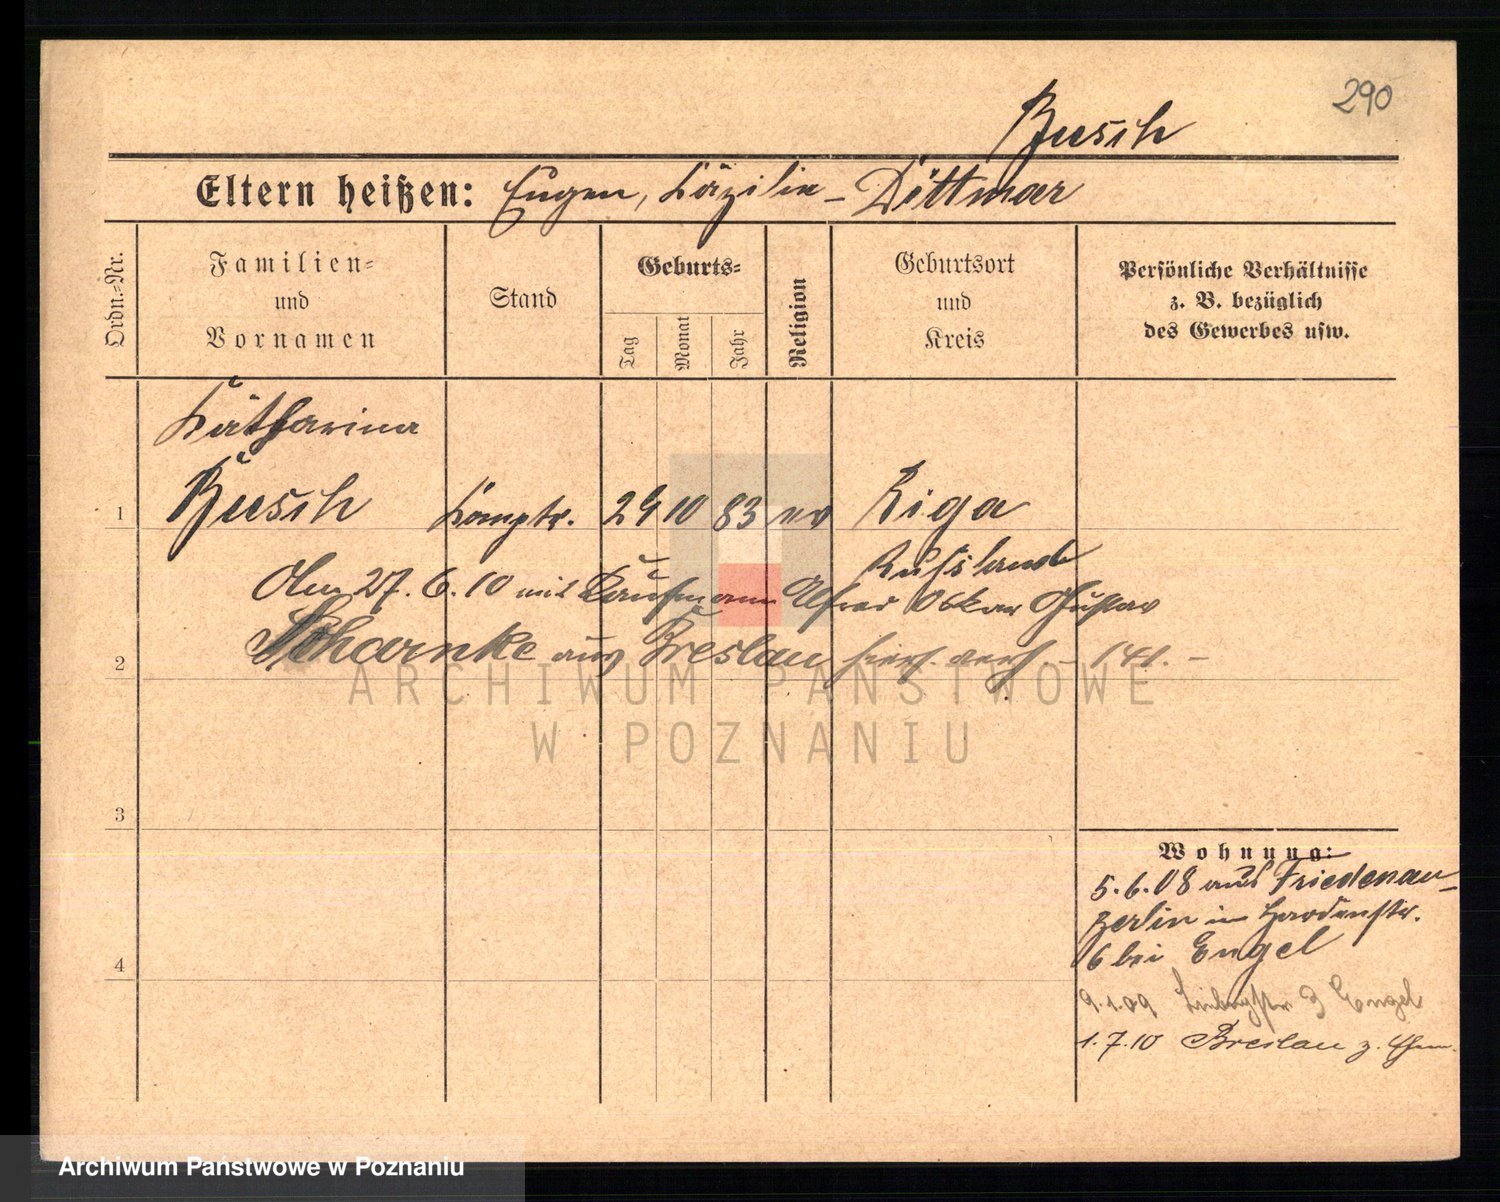 290
Busch
Eltern heißen: Eugen, Käzilie - Dittmar
Ordn.-Nr.
Familien-
und
Vornamen
Stand
Geburts-
Tag
Monat
Jahr
Religion
Geburtsort
und
Kreis
Persönliche Verhältnisse
z. B. bezüglich
des Gewerbes usw.
Katharina
1 Busch Komptr. 29 10 83 ev Riga
Russland
Am 27.6.10 mit Kaufmann Alfred Oskar Gustav
2 Scharnke aus Breslau hies. verh. - 141. -
ARCHIWUM PAŃSTWOWE
W POZNANIU
3
Wohnung:
5.6.08 aus Friedenau-
Berlin in
6 bei Engel
4
9.1.09 3 Engel
1.7.10 Breslau z. Ehem.
Archiwum Państwowe w Poznaniu